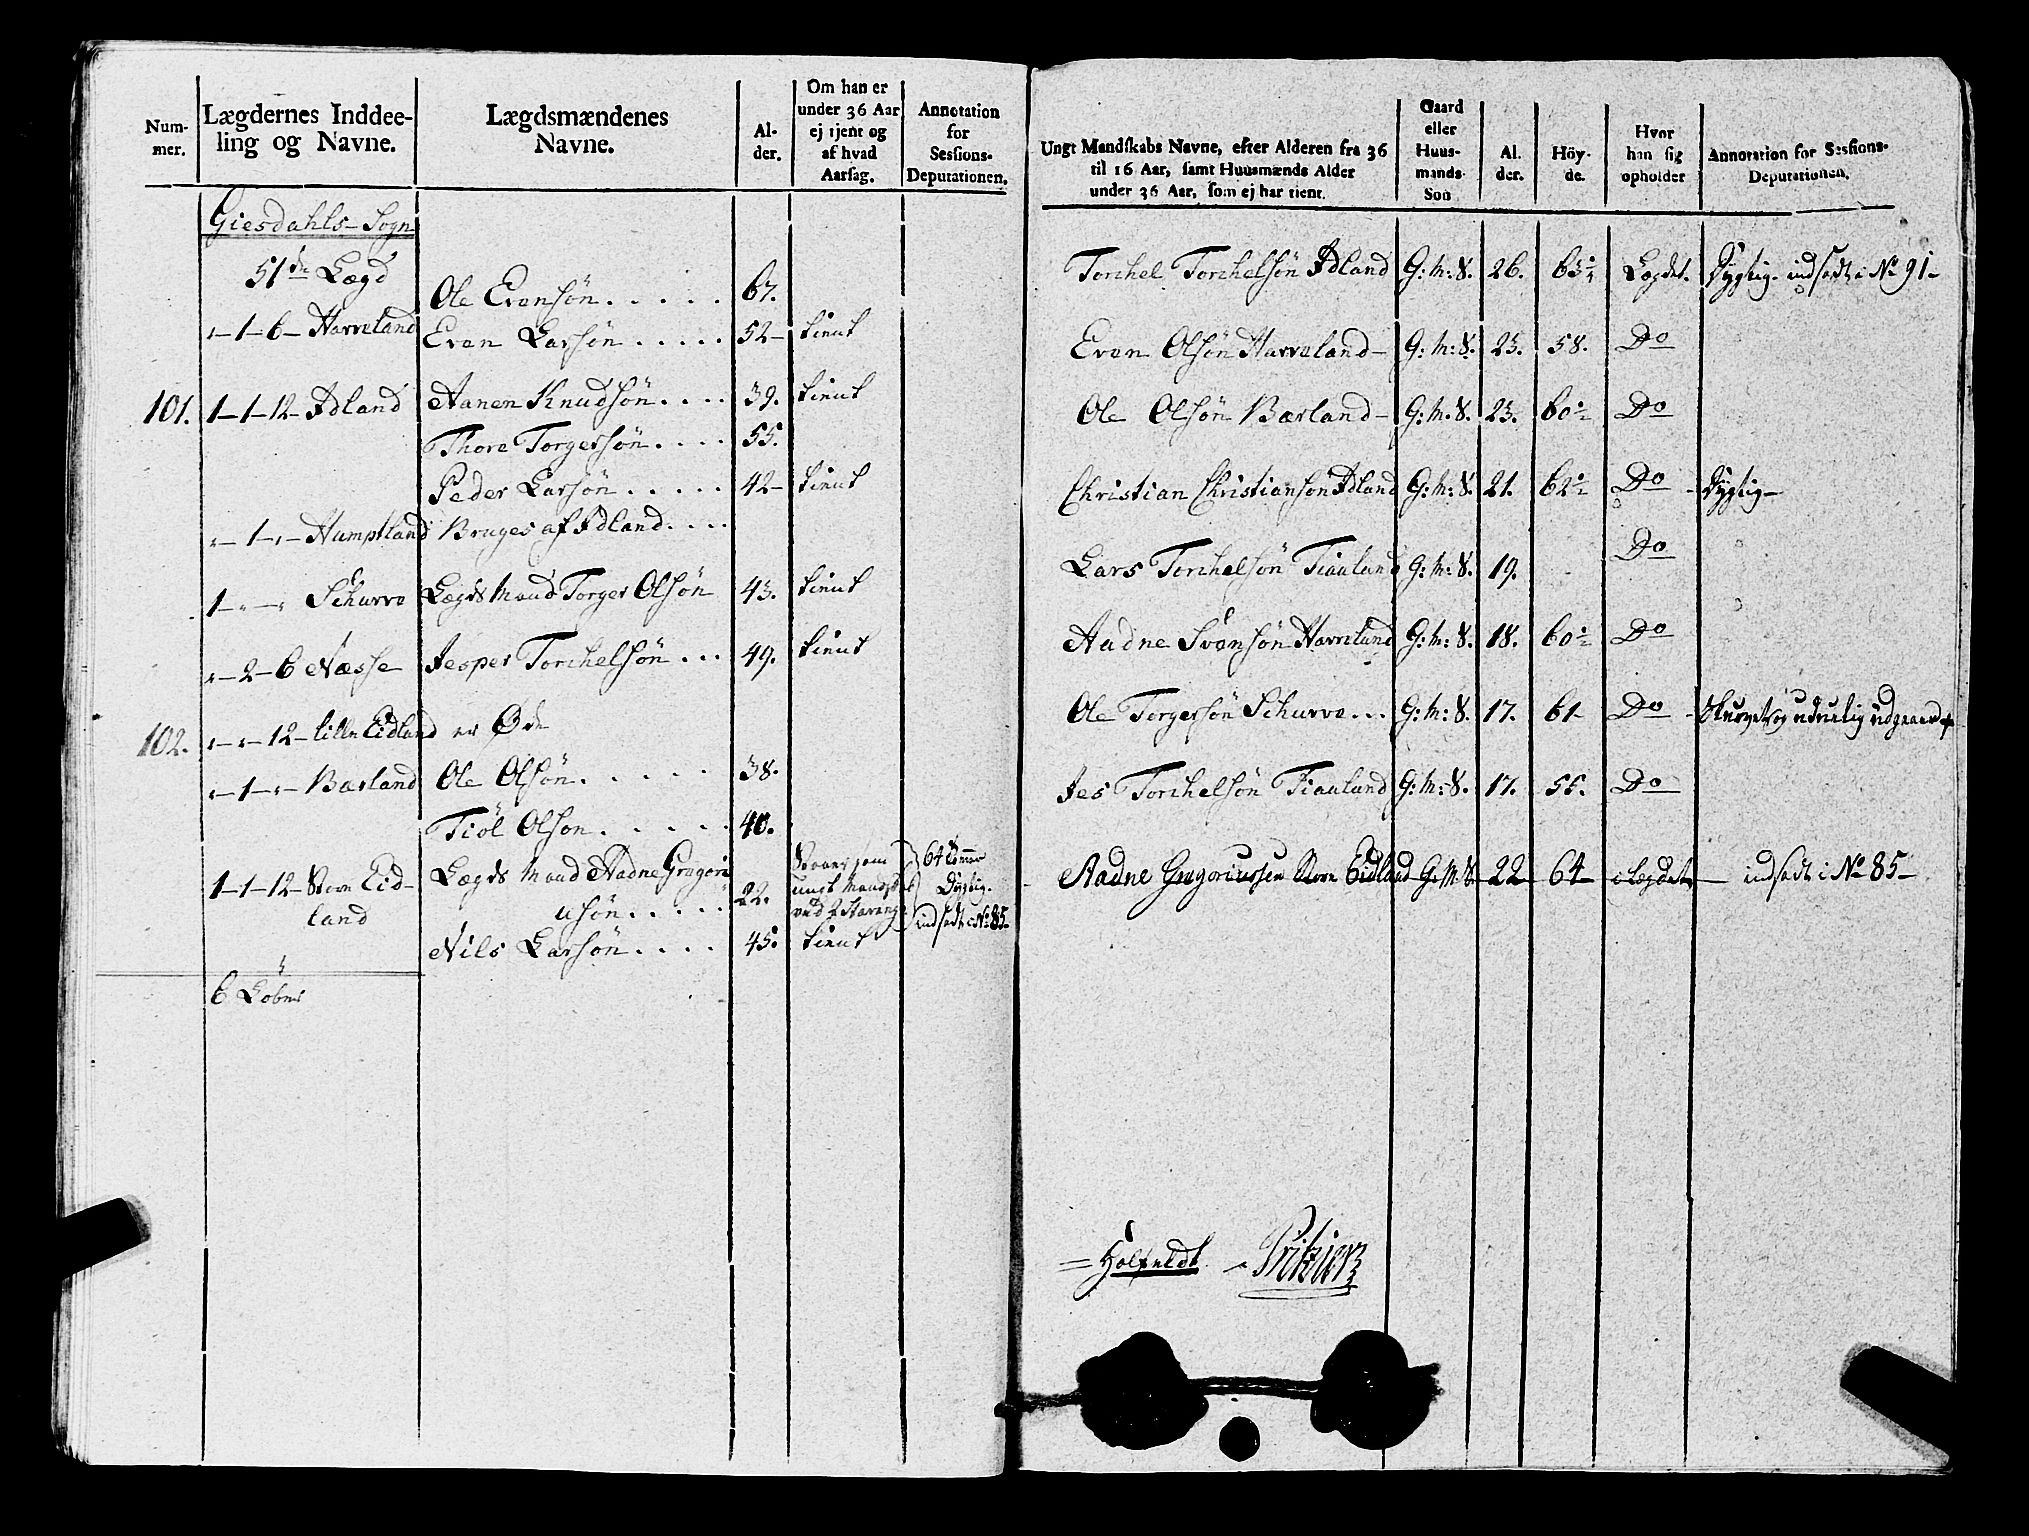 Num-
mer.
Lægdernes Inddee-
ling og Navne.
Lægdsmændenes
Navne.
Al-
der.
Om han er
under 36 Aar
ej tjent og
af hvad
Aarsag.
Annotation
for
Sessions-
Deputationen.
Giesdahls-Sogn
51de Lægd
Ole Evensøn . . . . . 67.
1-6- Harreland Even Larsøn . . . . . 52- tient
101. 1-1-12- Adland Aanen Knudsøn . . . . 39. tient
Thore Torgersøn . . . . 55.
Peder Larsøn . . . . . 42- tient
1 Humpland Bruges af Adland . . . .
1 Schurve Lægds Mand Torger Olsøn 43. tient
2-6 Næsse Jesper Torchelsøn . . . 49. tient
102. 12- lille Eidland er Øde
1 Bærland Ole Olsøn . . . . . 38.
Tiøl Olson . . . . . 40.
1-1-12- Store Eid-
land
Lægds Mand Aadne Gregori
usøn . . . . . 22.
som
ungt Mandskab
64 Tommer
Dygtig.
indsadt i No 85.
Nils Larsøn . . . . 45. tient
6 Løbs
Ungt Mandskabs Navne, efter Alderen fra 36
til 16 Aar, samt Huusmænds Alder
under 36 Aar, som ej har tient.
Gaard
eller
Huus-
mands-
Søn
Al.
der.
Höy-
de.
Hvor
han sig
opholder
Annotation for Sessions-
Deputationen.
Torchel Torchelsøn Adland G: M: S. 26. Lægdet. Dygtig. indsadt i No 91-
Even Olsøn Harreland- G: M: S. 23. 58. Do
Ole Olsøn Bærland- G: M: S. 23. 60½ Do
Christian Christiansøn Adland G: M: S. 21. 62½ Do - Dygtig-
Lars Torchelsøn Tiauland G: M: S. 19. Do
Aadne Svensøn Harreland G: M: S. 18. 60½ Do
Ole Torgersøn Schurve . . . G: M: S. 17. 61- Do - og uduelig udgaaer
Jes Torchelsøn Tiauland G: M: S. 17. 55. Do
Aadne Gregoriussen Store Eidland G: M: S. 22 64 i Lægdet indsadt i No 85-
Holfeldt. Pritzier